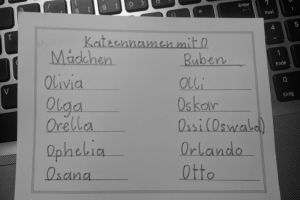 Katzennamen mit O
Mädchen Buben
Olivia Olli
Olga Oskar
Orella Ossi (Oswald)
Ophelia Orlando
Osana Otto